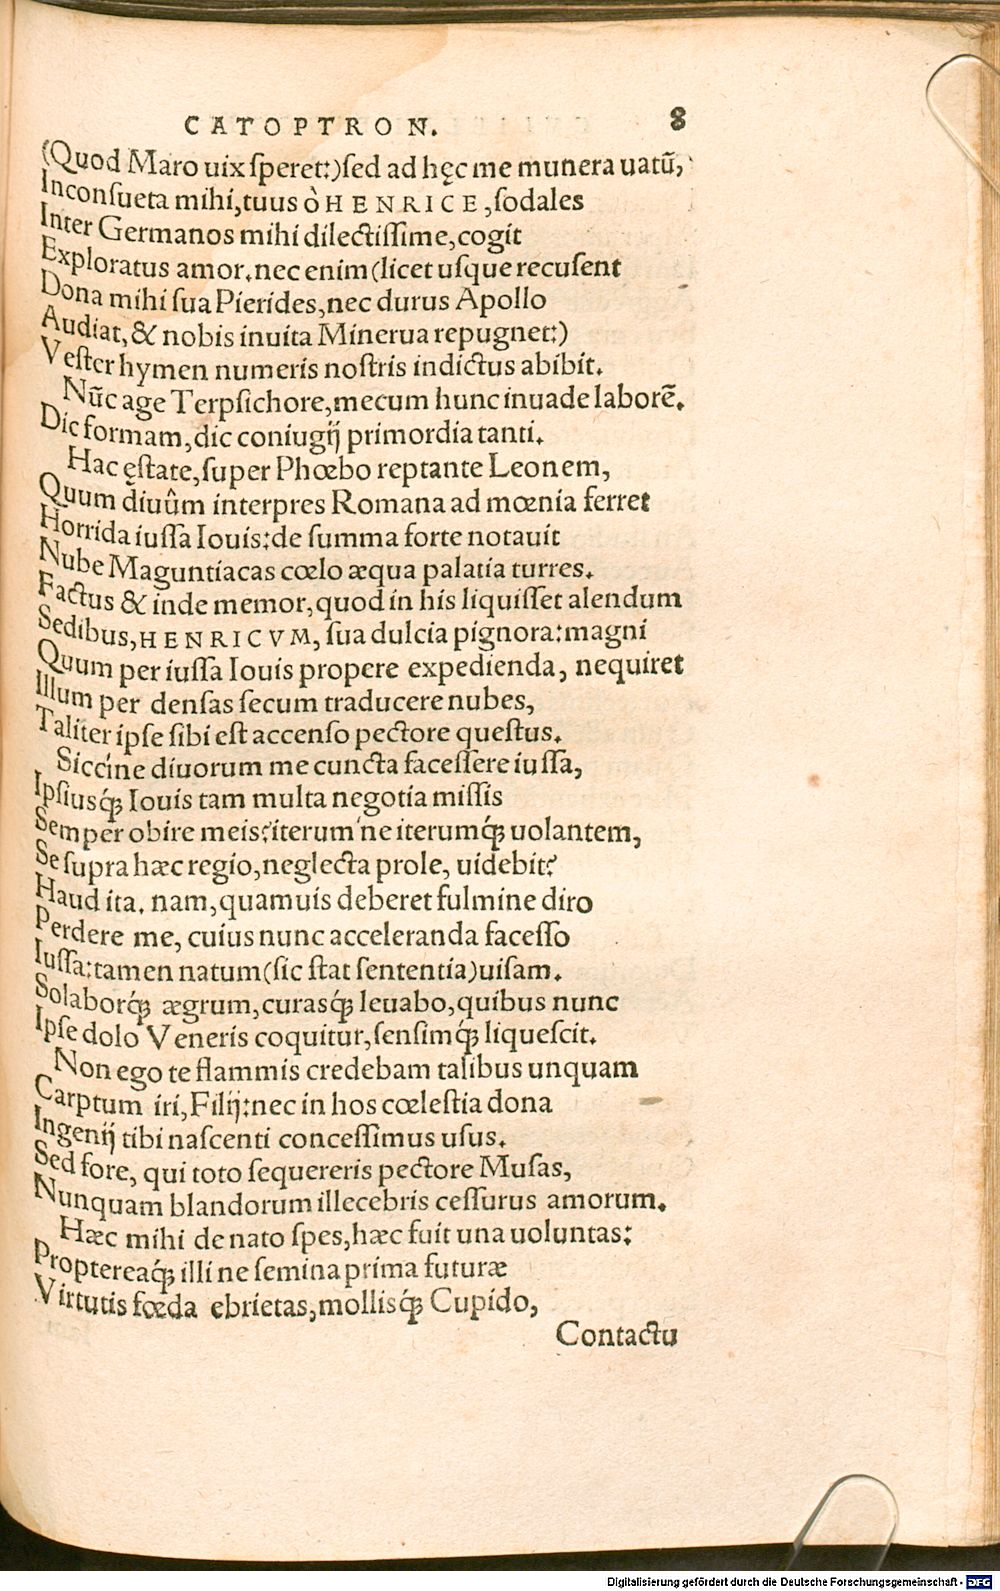 CATOPTRON. 8
(Quod Maro uix ſperet:)ſed ad hęc me munera uatũ,
Inconſueta mihi,tuus ò HENRICE,ſodales
Inter Germanos mihi dilectiſſime,cogit
Exploratus amor.nec enim(licet uſque recuſent
Dona mihi ſua Pierides,nec durus Apollo
Audiat,& nobis inuita Minerua repugnet:)
Veſter hymen numeris noſtris indictus abibit.
Nũc age Terpſichore,mecum hunc inuade laborẽ.
Dic formam,dic coniugij primordia tanti.
Hac ęſtate,ſuper Phœbo reptante Leonem,
Quum diuûm interpres Romana ad mœnia ferret
Horrida iuſſa Iouis:de ſumma forte notauit
Nube Maguntiacas cœlo æqua palatia turres.
Factus & inde memor,quod in his liquiſſet alendum
Sedibus,HENRICVM,ſua dulcia pignora:magni
Quum per iuſſa Iouis propere expedienda, nequiret
Illum per denſas ſecum traducere nubes,
Taliter ipſe ſibi eſt accenſo pectore queſtus.
Siccine diuorum me cuncta faceſſere iuſſa,
Ipſiusq́ꝫ Iouis tam multa negotia miſſis
Semper obire meis?iterum'ne iterumq́ꝫ uolantem,
Se ſupra hæc regio,neglecta prole, uidebit?
Haud ita. nam,quamuis deberet fulmine diro
Perdere me, cuius nunc acceleranda faceſſo
Iuſſa:tamen natum(ſic ſtat ſententia)uiſam.
Solaborq́ꝫ ægrum,curasq́ꝫ leuabo,quibus nunc
Ipſe dolo Veneris coquitur,ſenſimq́ꝫ liqueſcit.
Non ego te flammis credebam talibus unquam
Carptum iri,Filij:nec in hos cœleſtia dona
Ingenij tibi naſcenti conceſſimus uſus.
Sed fore, qui toto ſequereris pectore Muſas,
Nunquam blandorum illecebris ceſſurus amorum.
Hæc mihi de nato ſpes,hæc fuit una uoluntas:
Propterea q́ꝫ illi ne ſemina prima futuræ
Virtutis fœda ebrietas,mollisq́ꝫ Cupido,
Contactu
Digitalisierung gefördert durch die Deutsche Forschungsgemeinschaft - DFG